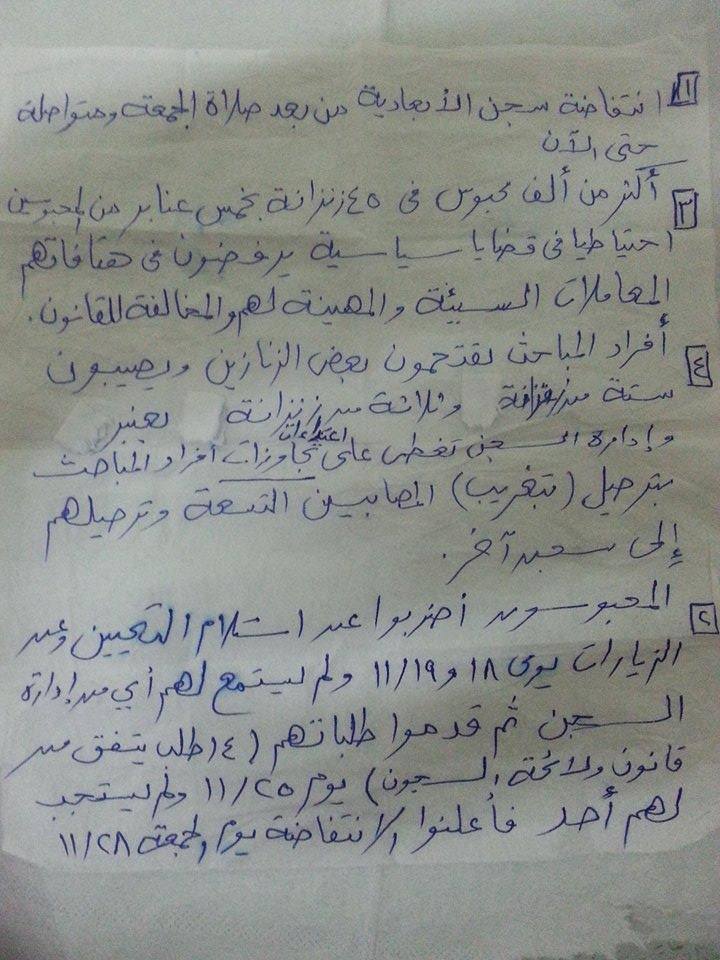 ١ انتفاضة سجن الأبعادية من بعد صلاة الجمعة ومتواصلة
حتى الآن
٣ أكثر من ألف محبوس فى ٤٥ زنزانة بخمس عنابر من المحبوسين
احتياطيا فى قضايا سياسية يرفضون فى هتافاتهم
المعاملات السيئة والمهينة لهم والمخالفة للقانون.
٤ أفراد المباحث يقتحمون بعض الزنازين ويصيبون
ستة من زنزانة وثلاثة من زنزانة بعنبر
اعتداءات
وإدارة السجن تغطى على تجاوزات أفراد المباحث
بترحيل (تغريب) المصابين التسعة وترحيلهم
إلى سجن آخر.
٢ المحبوسون أضربوا عن استلام التعيين وعن
الزيارات يومى ١٨ و ١١/١٩ ولم يستمع لهم أي من إدارة
السجن ثم قدموا طلباتهم (١٤ طلب يتفق من
قانون ولائحة السجون) يوم ١١/٢٥ ولم يستجب
لهم أحد فأعلنوا الانتفاضة يوم الجمعة ١١/٢٨